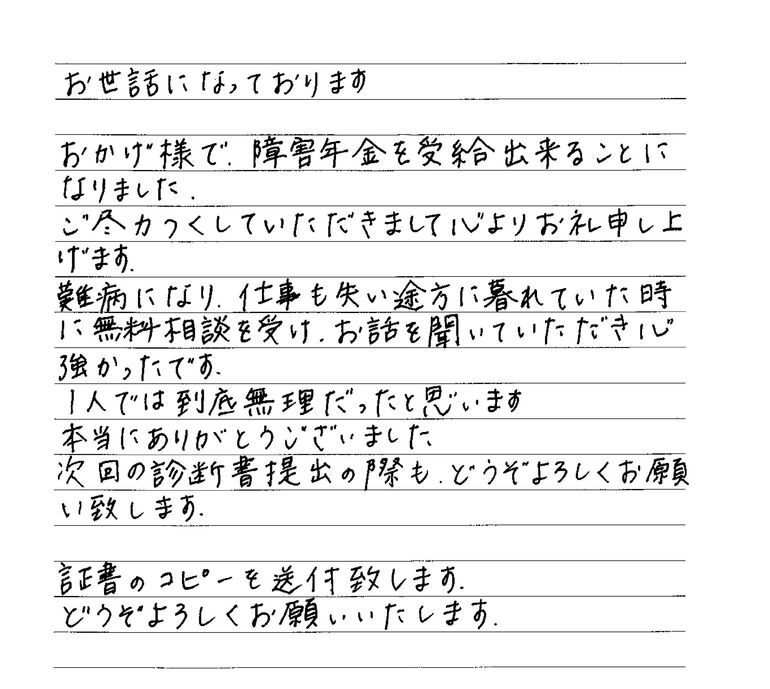 お世話になっております
おかげ様で、障害年金を受給出来ることに
なりました.
ご尽力つくしていただきまして心よりお礼申し上
げます.
難病になり、仕事も失い途方に暮れていた時
に無料相談を受け、お話を聞いていただき心
強かったです.
1人では到底無理だったと思います
本当にありがとうございました.
次回の診断書提出の際も、どうぞよろしくお願
い致します.
証書のコピーを送付致します.
どうぞよろしくお願いいたします.